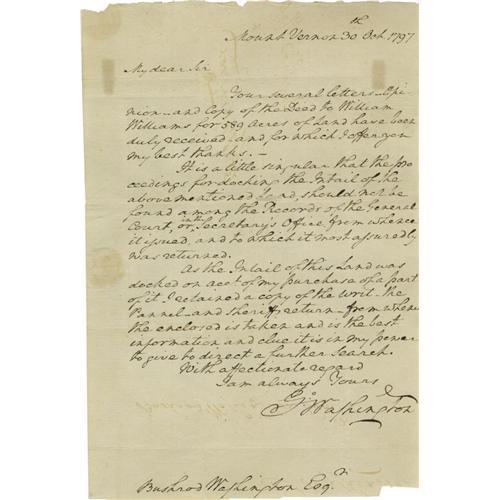 Mount Vernon 30th Oct. 1797
My dear Sir
Your several letters—Opi-
nion—and copy of the Deed to William
Williams for 589 Acres of Land have been
duly received—and for which I offer you
my best thanks.—
It is a little singular that the pro
ceedings for docking the Intail of the
abovementioned Land, should not be
found among the Records of the General
Court, or in the Secretary's Office from whence
it issued, and to which it most assuredly
was returned.
As the Intail of this Land was
docked on acct of my purchase of a part
of it, I retained a copy of the writ. the
Pannel—and sheriffs return—from whence
the enclosed is taken and is the best
information and clue it is in my power
to give to direct a further search.
With affectionate regard
I am always Yours
Go: Washington
Bushrod Washington Esqr.